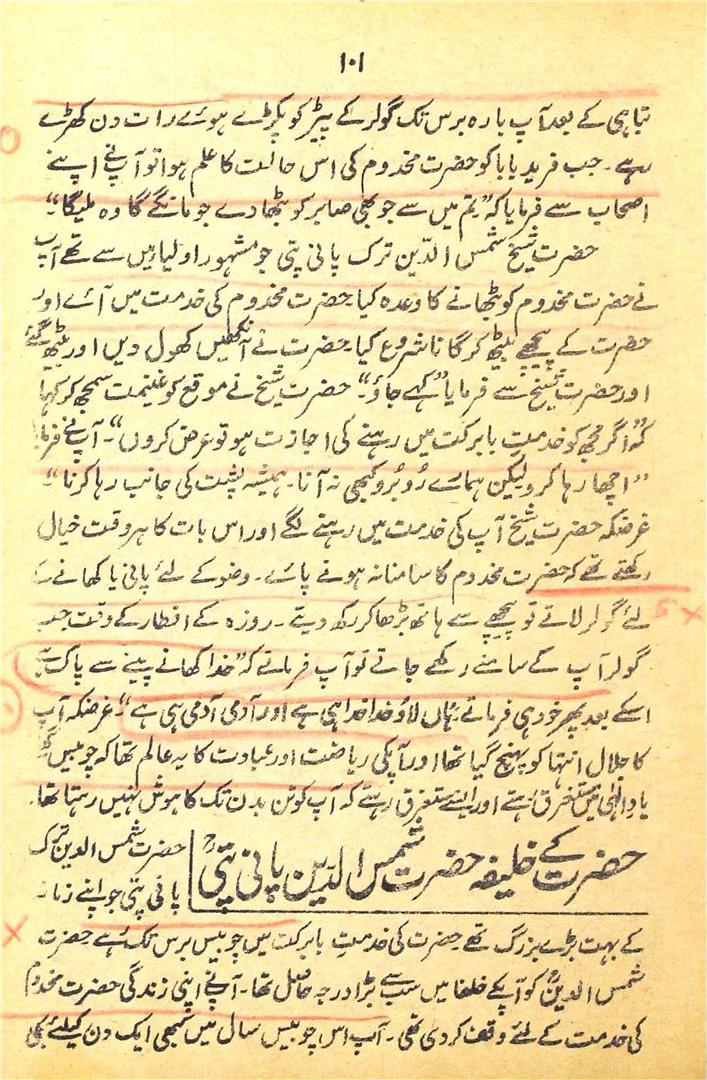 ۱۰۱
تباہی کے بعد آپ بارہ برس تک گولر کے پیڑ کو پکڑے ہوئے رات دن کھڑے
رہے۔ جب فرید بابا کو حضرت مخدوم کی اس حالت کا علم ہوا تو آپ نے اپنے
اصحاب سے فرمایا کہ "تم میں سے جو بھی صابر کو بٹھا دے جو مانگے گا وہ ملیگا"۔
حضرت شیخ شمس الدّین ترک پانی پتی جو مشہور اولیا میں سے تھے آپ
نے حضرت مخدوم کو بٹھانے کا وعدہ کیا۔ حضرت مخدوم کی خدمت میں آئے اور
حضرت کے پیچھے بیٹھ کر گانا شروع کیا۔ حضرت نے آنکھیں کھول دیں اور بیٹھ گئے
اور حضرت شیخ سے فرمایا "کہے جاؤ"۔ حضرت شیخ نے موقع کو غنیمت سمجھ کر کہا
کہ "اگر مجھ کو خدمتِ بابرکت میں رہنے کی اجازت ہو تو عرض کروں"۔ آپ نے فرمایا
"اچھا رہا کرو لیکن ہمارے رُو بُرو کبھی نہ آنا۔ ہمیشہ پشت کی جانب رہا کرنا"۔
غرضکہ حضرت شیخ آپ کی خدمت میں رہنے لگے اور اس بات کا ہر وقت خیال
رکھتے تھے کہ حضرت مخدوم کا سامنا نہ ہونے پائے۔ وضو کے لئے پانی یا کھانے کے
لئے گولر لاتے تو پیچھے سے ہاتھ بڑھا کر رکھ دیتے۔ روزہ کے افطار کے وقت جب
گولر آپ کے سامنے رکھے جاتے تو آپ فرماتے کہ "خدا کھانے پینے سے پاک ہے
اسکے بعد پھر خود ہی فرماتے ہاں لاؤ خدا خدا ہی ہے اور آدمی آدمی ہی ہے"۔ غرضکہ آپ
کا جلال انتہا کو پہنچ گیا تھا اور آپکی ریاضت اور عبادت کا یہ عالم تھا کہ چوبیس گھنٹے
یادِ الٰہی میں مستغرق رہتے اور ایسے مستغرق رہتے کہ آپ کو تن بدن تک کا ہوش نہیں رہتا تھا۔
حضرت کے خلیفہ حضرت شمس الدّین پانی پتیؒ
حضرت شمس الدین ترک
پانی پتی جو اپنے زمانہ
کے بہت بڑے بزرگ تھے حضرت کی خدمتِ بابرکت میں چوبیس برس تک رہے حضرت
شمس الدینؒ کو آپکے خلفا میں سب سے بڑا درجہ حاصل تھا۔ آپنے اپنی زندگی حضرت مخدوم
کی خدمت کے لئے وقف کر دی تھی۔ آپ اس چوبیس سال میں کبھی ایک دن کیلئے بھی